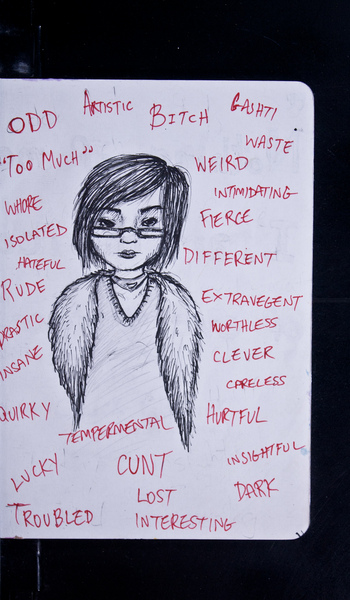 ODD
ARTISTIC
BITCH
GASHTI
WASTE
"TOO MUCH"
WEIRD
INTIMIDATING
WHORE
FIERCE
ISOLATED
HATEFUL
DIFFERENT
RUDE
EXTRAVEGENT
DRASTIC
WORTHLESS
INSANE
CLEVER
CARELESS
QUIRKY
HURTFUL
TEMPERMENTAL
INSIGHTFUL
LUCKY
CUNT
DARK
LOST
TROUBLED
INTERESTING